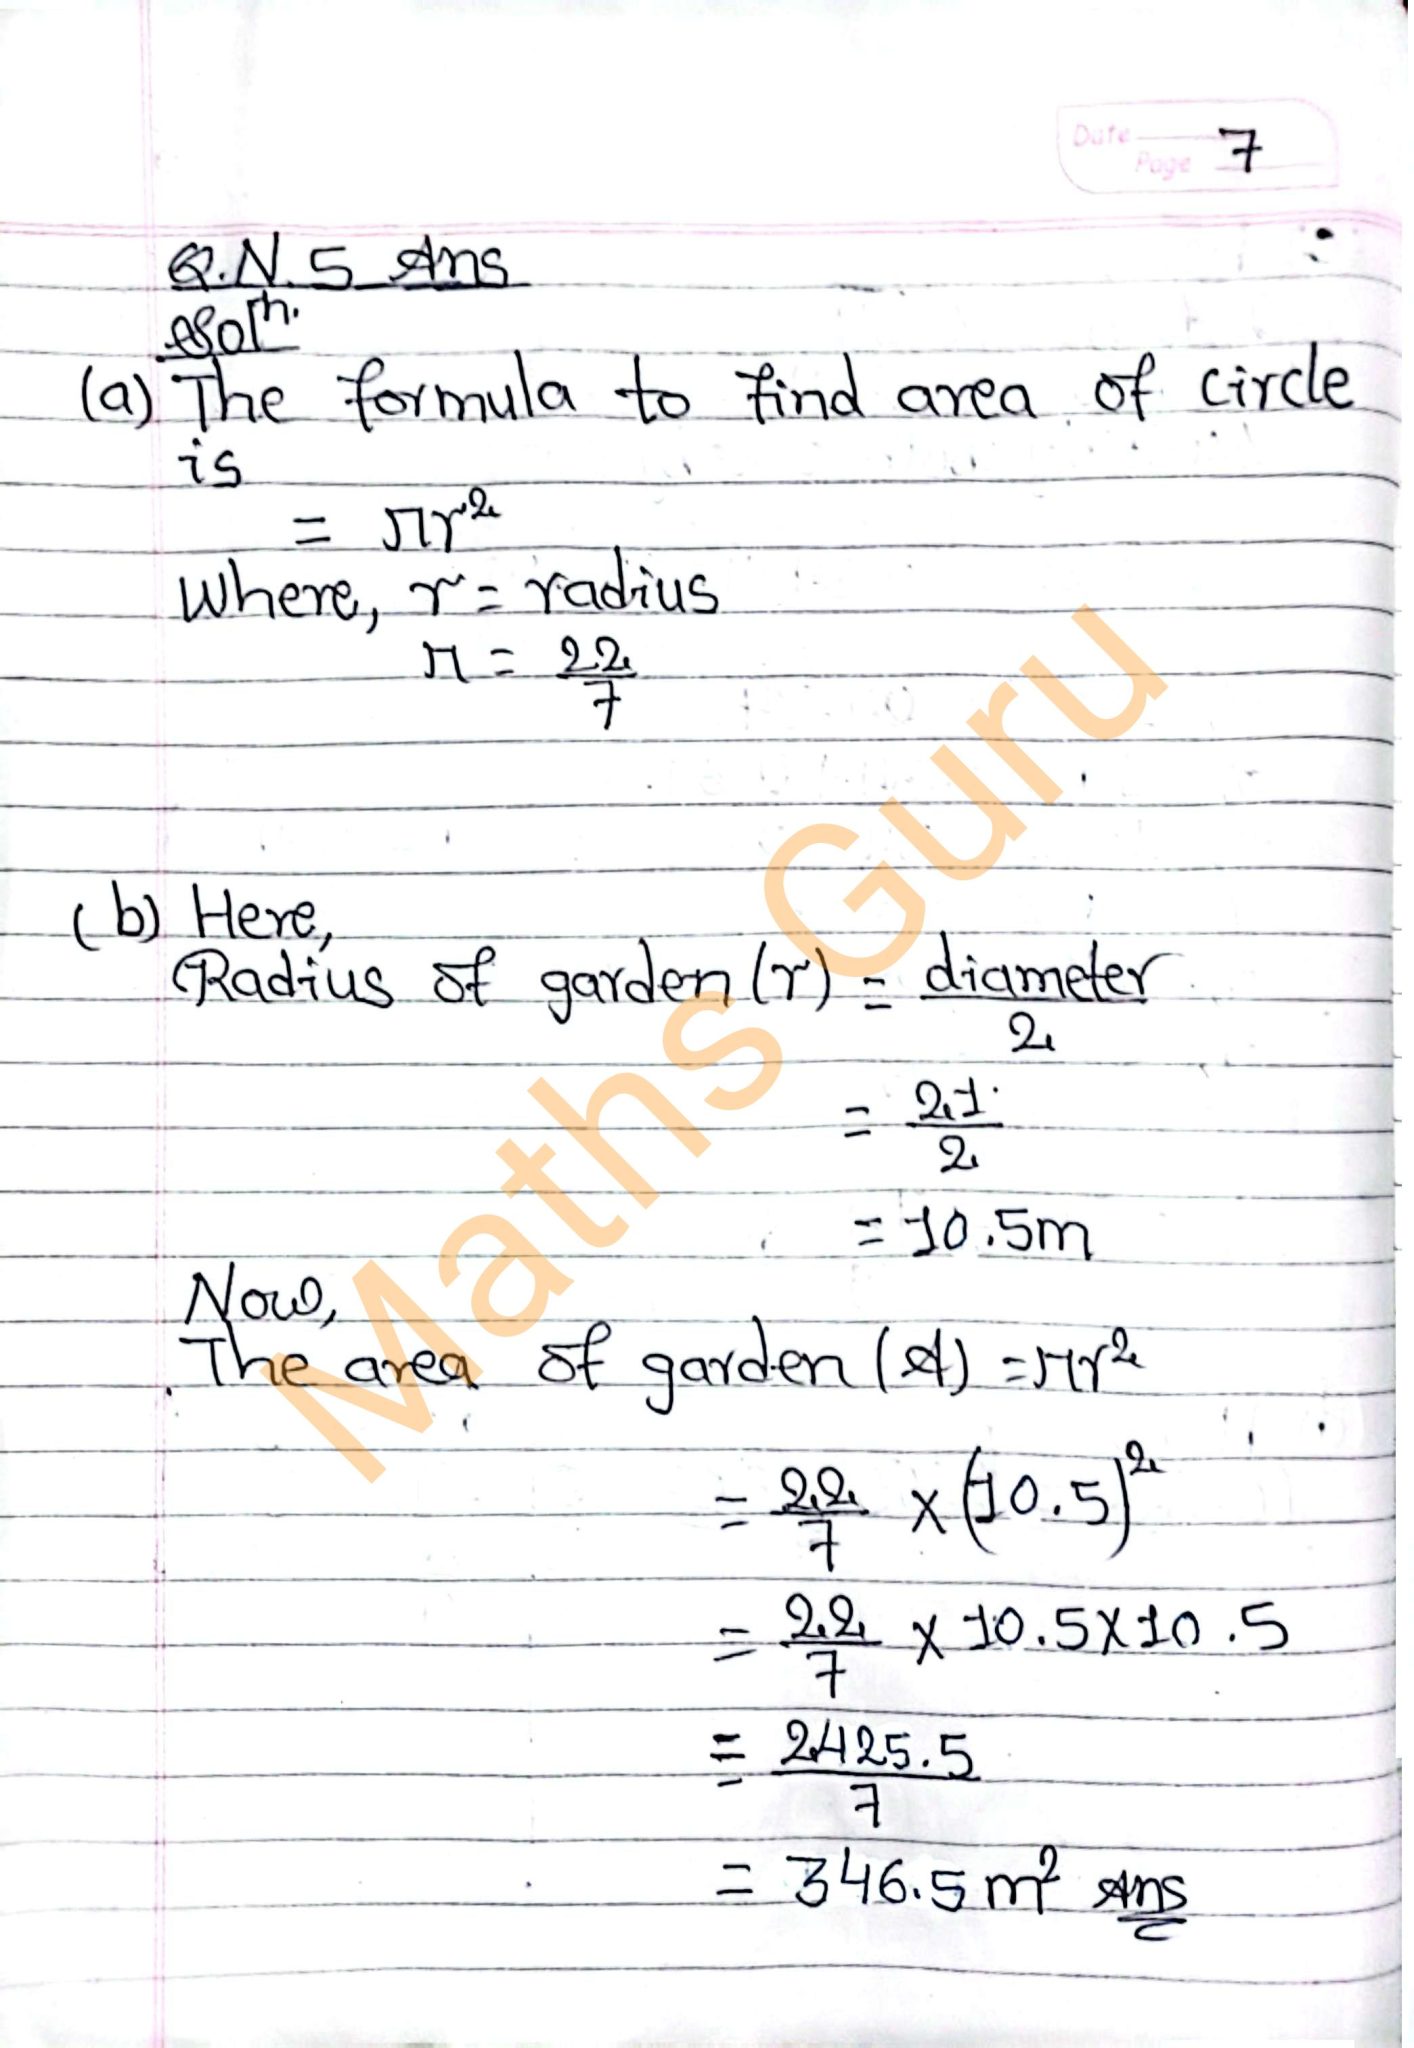 Date
Page 7
Q.N. 5 Ans
Solⁿ.
(a) The formula to find area of circle
is
= πr²
Where, r = radius
π = 22/7
(b) Here,
Radius of garden (r) = diameter/2
= 21/2
= 10.5m
Now,
The area of garden (A) = πr²
= 22/7 × (10.5)²
= 22/7 × 10.5 × 10.5
= 2425.5/7
= 346.5 m² Ans
Maths Guru